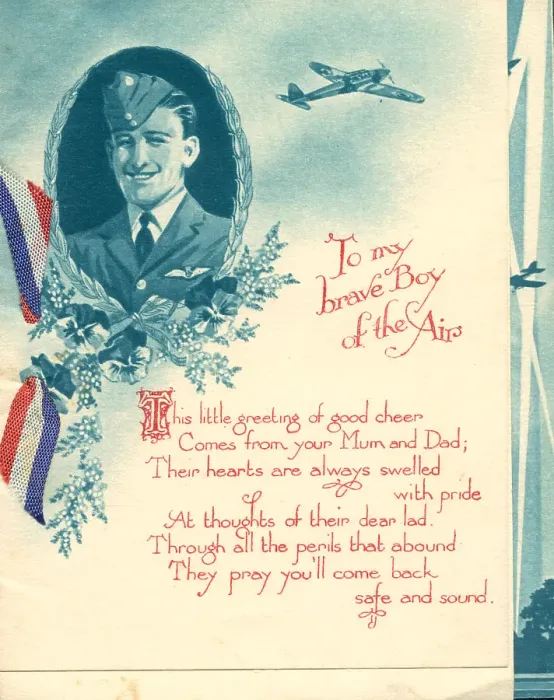 To my
brave Boy
of the Air
This little greeting of good cheer
Comes from your Mum and Dad;
Their hearts are always swelled
with pride
At thoughts of their dear lad.
Through all the perils that abound
They pray you'll come back
safe and sound.